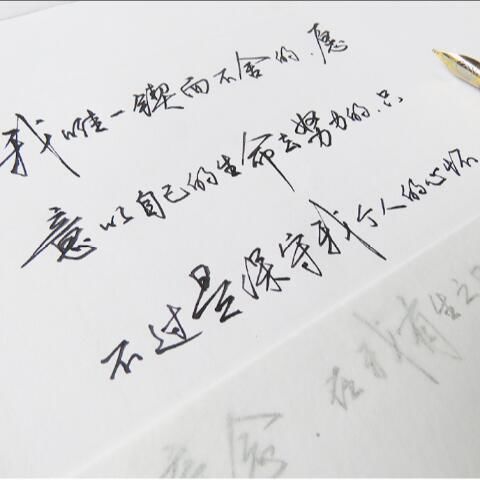 我唯一锲而不舍的.愿
意以自己的生命去努力的.只
不过是保守我个人的心怀
.在我有生之